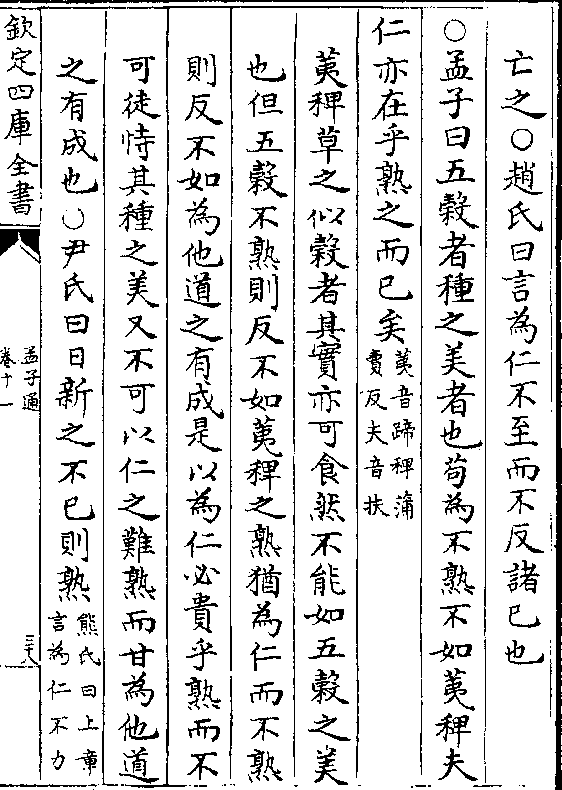 亡之○趙氏曰言為仁不至而不反諸已也
○孟子曰五穀者種之美者也苟為不熟不如荑稗夫
仁亦在乎熟之而已矣荑音蹄稗蒲
賣反夫音扶
荑稗草之似穀者其實亦可食然不能如五穀之美
也但五穀不熟則反不如荑稗之熟猶為仁而不熟
則反不如為他道之有成是以為仁必貴乎熟而不
可徒恃其種之美又不可以仁之難熟而甘為他道
之有成也○尹氏曰日新之不已則熟熊氏曰上章
言為仁不力
欽定四庫全書
孟子通
卷十一
三十八